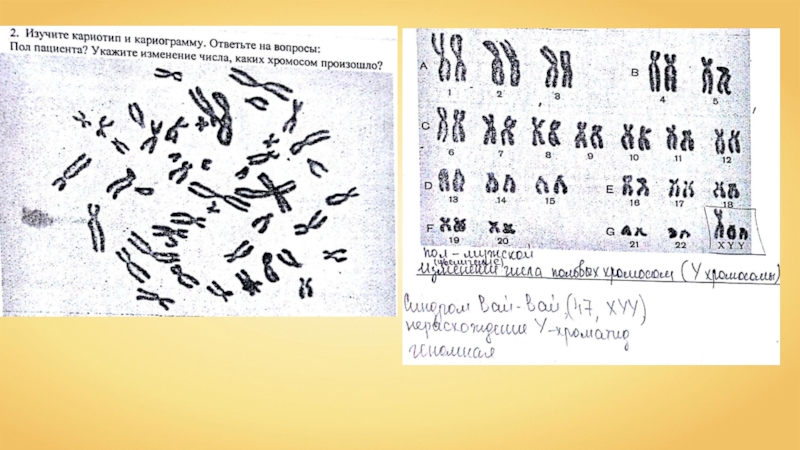 2. Изучите кариотип и кариограмму. Ответьте на вопросы:
Пол пациента? Укажите изменение числа, каких хромосом произошло?
A 1 2 3 B 4 5
C 6 7 8 9 10 11 12
D 13 14 15 E 16 17 18
F 19 20 G 21 22 X Y Y
пол – мужской
(увеличение)
изменение числа половых хромосом (Y хромосомы)
Синдром Вай-Вай, (47, XYY)
нерасхождение Y-хроматид
геномная